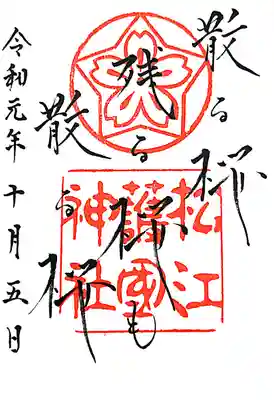 散る桜
残る桜も
散る桜
松江
護國
神社
令和元年十月五日